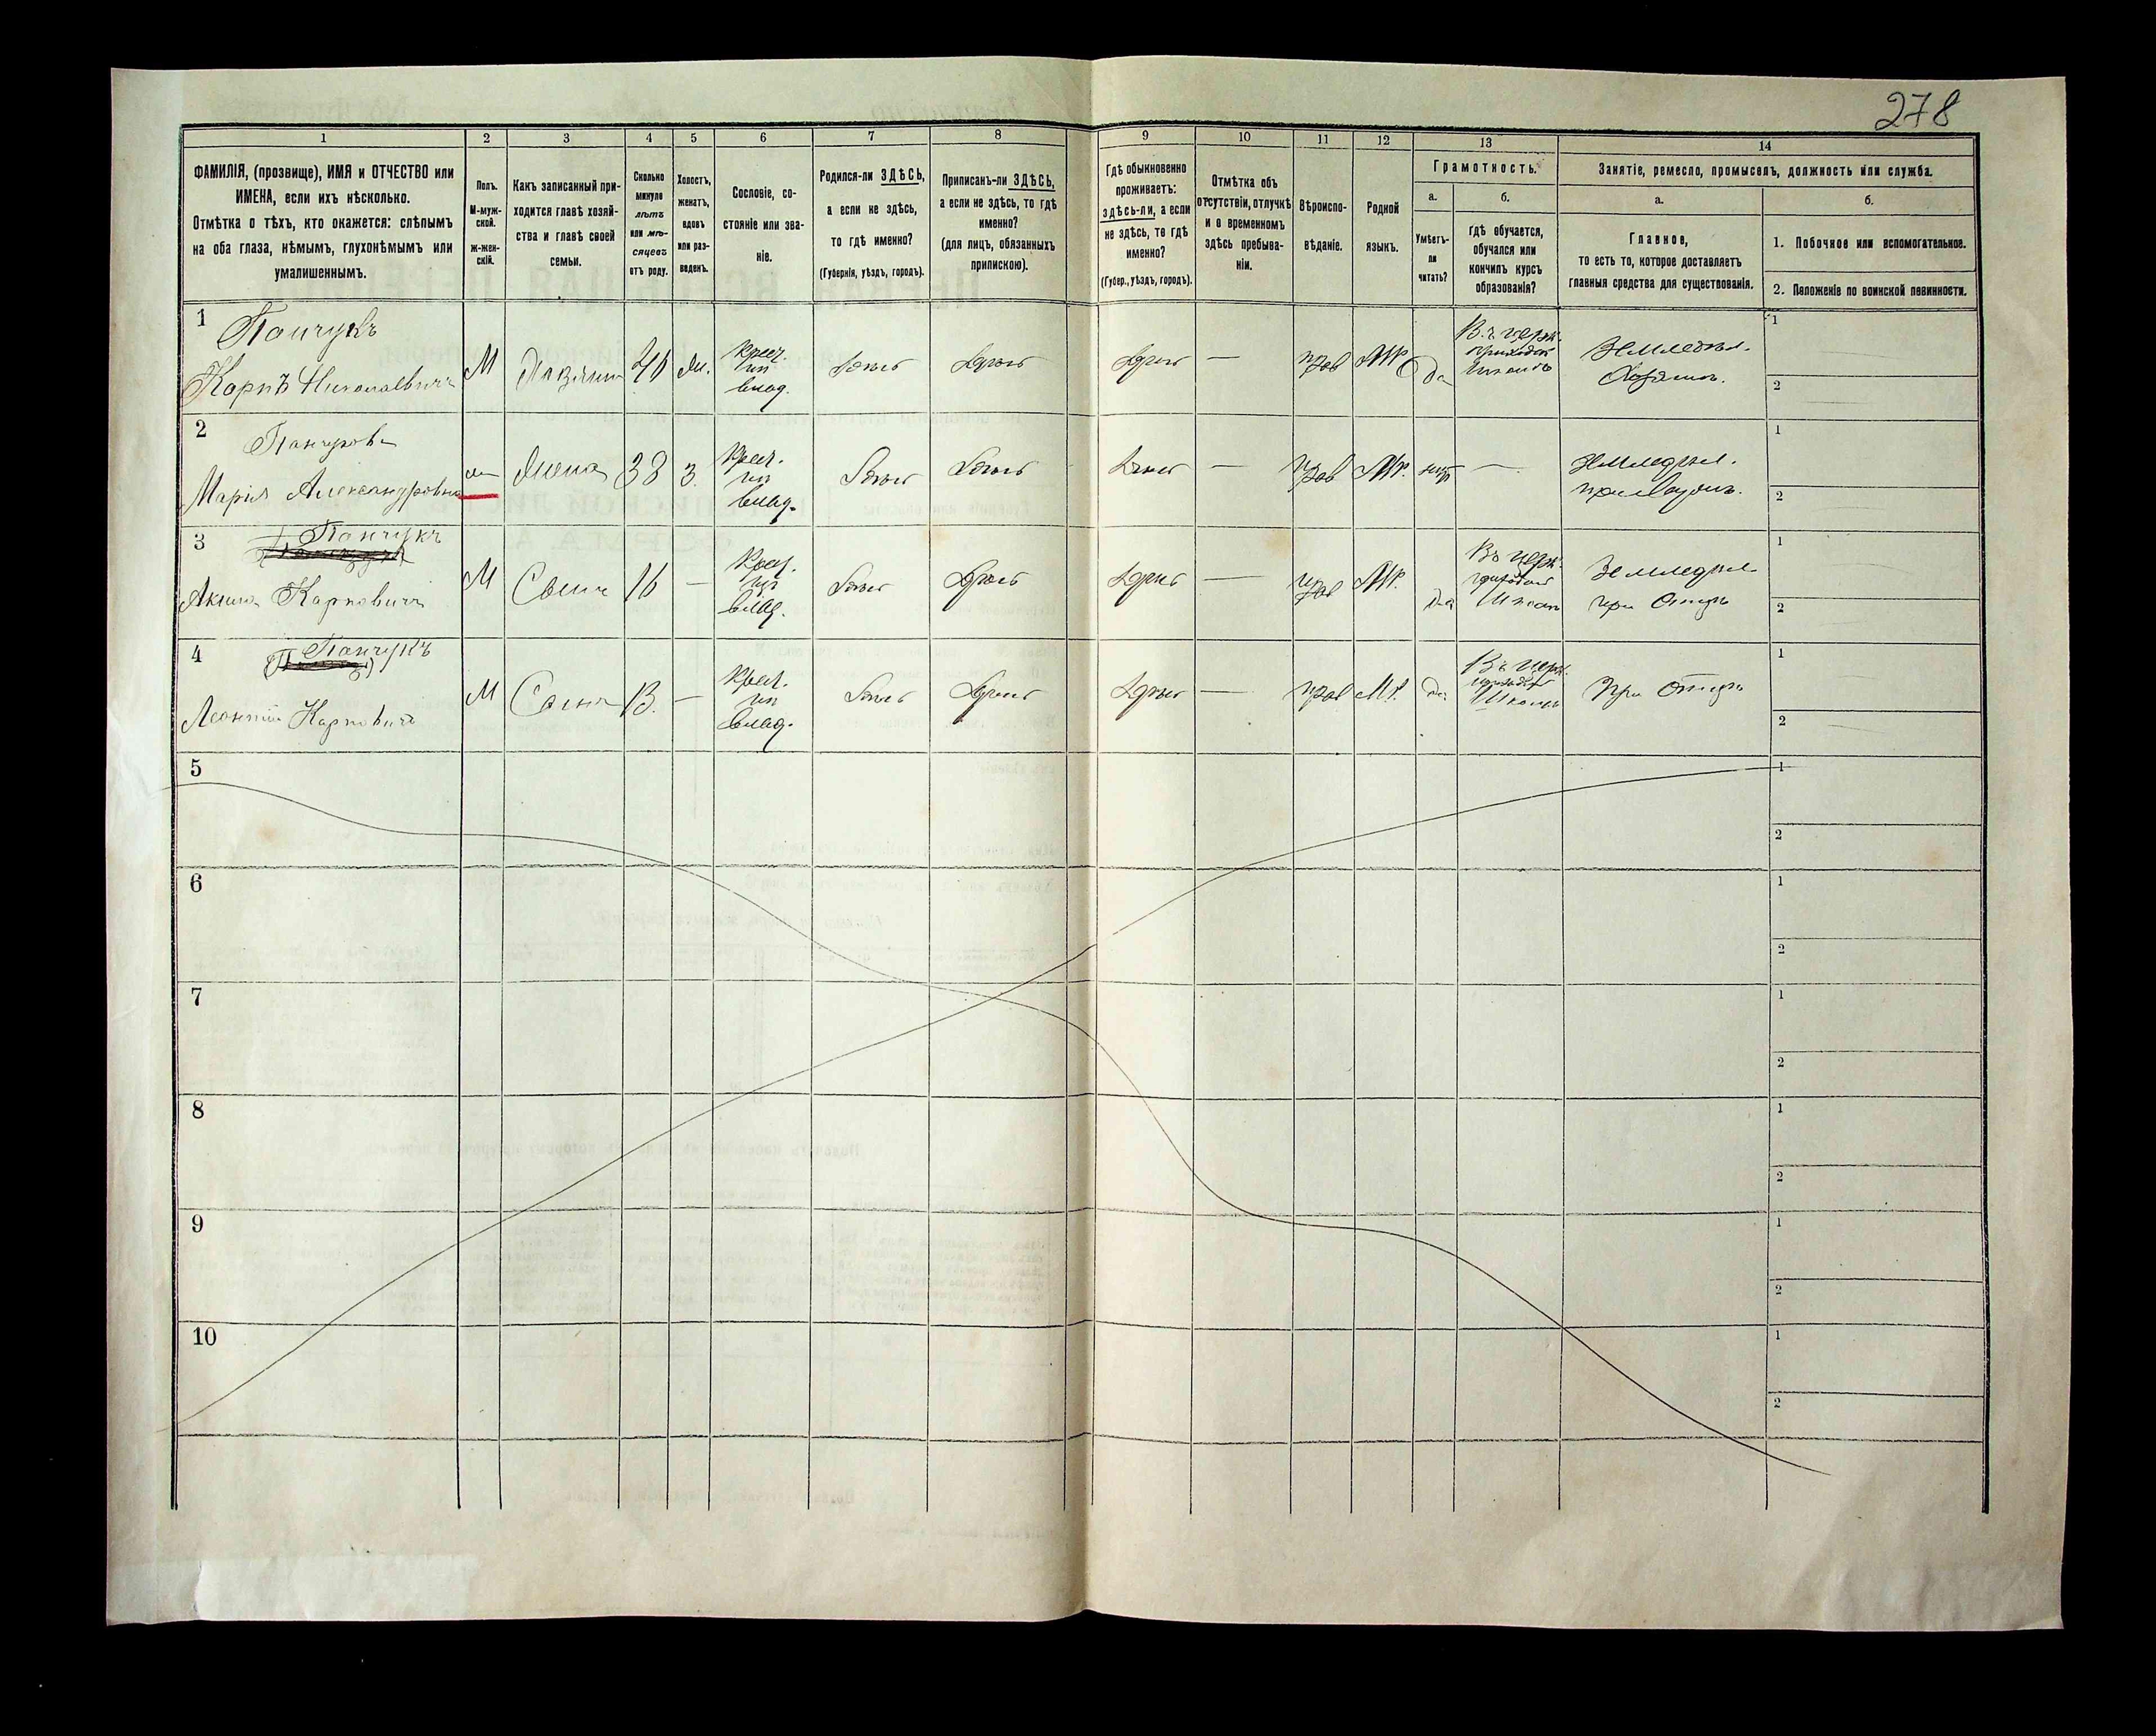 278
1
2
3
4
5
6
7
8
9
10
11
12
13
14
ФАМИЛІЯ, (прозвище), ИМЯ и ОТЧЕСТВО или
ИМЕНА, если ихъ нѣсколько.
Отмѣтка о тѣхъ, кто окажется: слѣпымъ
на оба глаза, нѣмымъ, глухонѣмымъ или
умалишеннымъ.
Полъ.
М-муж-
ской.
Ж-жен-
скій.
Какъ записанный при-
ходится главѣ хозяй-
ства и главѣ своей
семьи.
Сколько
минуло
лѣтъ
или мѣ-
сяцевъ
отъ роду.
Холостъ,
женатъ,
вдовъ
или раз-
веденъ.
Сословіе, со-
стояніе или зва-
ніе.
Родился-ли ЗДѢСЬ,
а если не здѣсь,
то гдѣ именно?
(Губернія, уѣздъ, городъ).
Приписанъ-ли ЗДѢСЬ,
а если не здѣсь, то гдѣ
именно?
(для лицъ, обязанныхъ
припискою).
Гдѣ обыкновенно
проживаетъ:
здѣсь-ли, а если
не здѣсь, то гдѣ
именно?
(Губер., уѣздъ, городъ).
Отмѣтка объ
отсутствіи, отлучкѣ
и о временномъ
здѣсь пребыва-
ніи.
Вѣроиспо-
вѣданіе.
Родной
языкъ.
Грамотность.
а.
Умѣетъ-
ли
читать?
б.
Гдѣ обучается,
обучался или
кончилъ курсъ
образованія?
Занятіе, ремесло, промыселъ, должность или служба.
а.
Главное,
то есть то, которое доставляетъ
главныя средства для существованія.
б.
1. Побочное или вспомогательное.
2. Положеніе по воинской повинности.
1
Панчукъ
Карпъ Николаевичъ
М
Хозяинъ
Ж.
крест.
влад.
Здѣсь
Здѣсь
Здѣсь
—
прав
Мр
да
Въ церк.
приход
школѣ
Земледѣл.
Хозяинъ.
1
2
2
Панчукова
Марія Александровна
ж
Жена
38
З.
Крест.
влад.
Здѣсь
Здѣсь
Здѣсь
—
прав
Мр.
нѣтъ
—
Земледѣл.
при мужѣ.
1
2
3
Панчукъ
Акимъ Карповичъ
М
Сынъ
16
—
Крест.
влад.
Здѣсь
Здѣсь
Здѣсь
—
прав
Мр.
да
Въ церк.
приход
школ
Земледѣл
при Отцѣ
1
2
4
Панчукъ
Леонтій Карповичъ
М
Сынъ
13.
—
Крест.
влад.
Здѣсь
Здѣсь
Здѣсь
—
прав
Мр.
да
Въ церк.
приход
школѣ
При Отцѣ
1
2
5
1
2
6
1
2
7
1
2
8
1
2
9
1
2
10
1
2